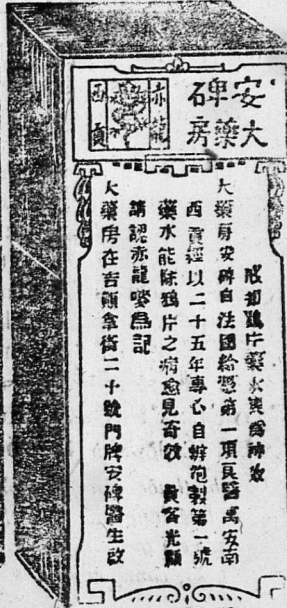 安碑
大藥房
赤龍
西貢
戒却鴉片藥水實為神效
大藥房安碑自法國給憑第一項良醫寓安南
西貢經以二十五年專心自辦炮製第一號
藥水能除鴉片之病愈見奇效 貴客光顧
請認赤龍嘜為記
大藥房在吉顛拿街二十號門牌安碑醫生啟